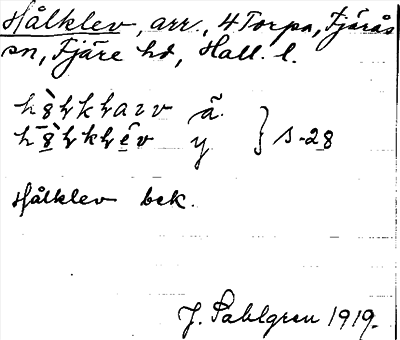 Hålklev, arr., 4 Torpa, Fjärås
sn, Fjäre hd, Hall. l.
ã
y } s-28
Hålklev bek.
J. Sahlgren 1919.